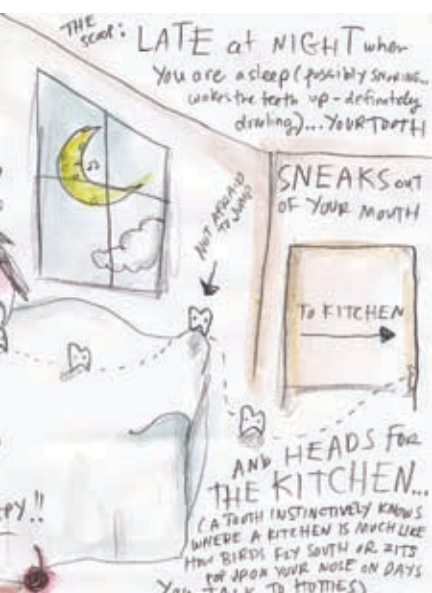 THE
SCOOP: LATE at NIGHT when
You are asleep (possibly snoring...
wakes the teeth up - definitely
drooling)... YOUR TOOTH
SNEAKS OUT
OF YOUR MOUTH
NOT AFRAID
TO JUMP
TO KITCHEN
AND HEADS FOR
THE KITCHEN...
(A TOOTH INSTINCTIVELY KNOWS
WHERE A KITCHEN IS MUCH LIKE
HOW BIRDS FLY SOUTH OR ZITS
POP UPON YOUR NOSE ON DAYS
YOU TALK TO HOTTIES)
PY!!